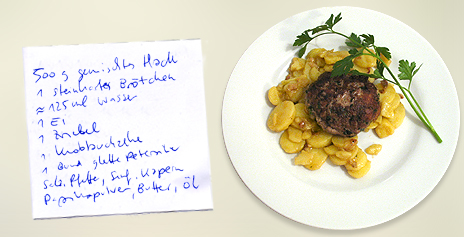 500 g gemischtes Hack
1 steinhartes Brötchen
≈ 125 ml Wasser
1 Ei
1 Zwiebel
1 Knoblauchzehe
1 Bund glatte Petersilie
Salz, Pfeffer, Senf, Kapern
Paprikapulver, Butter, Öl